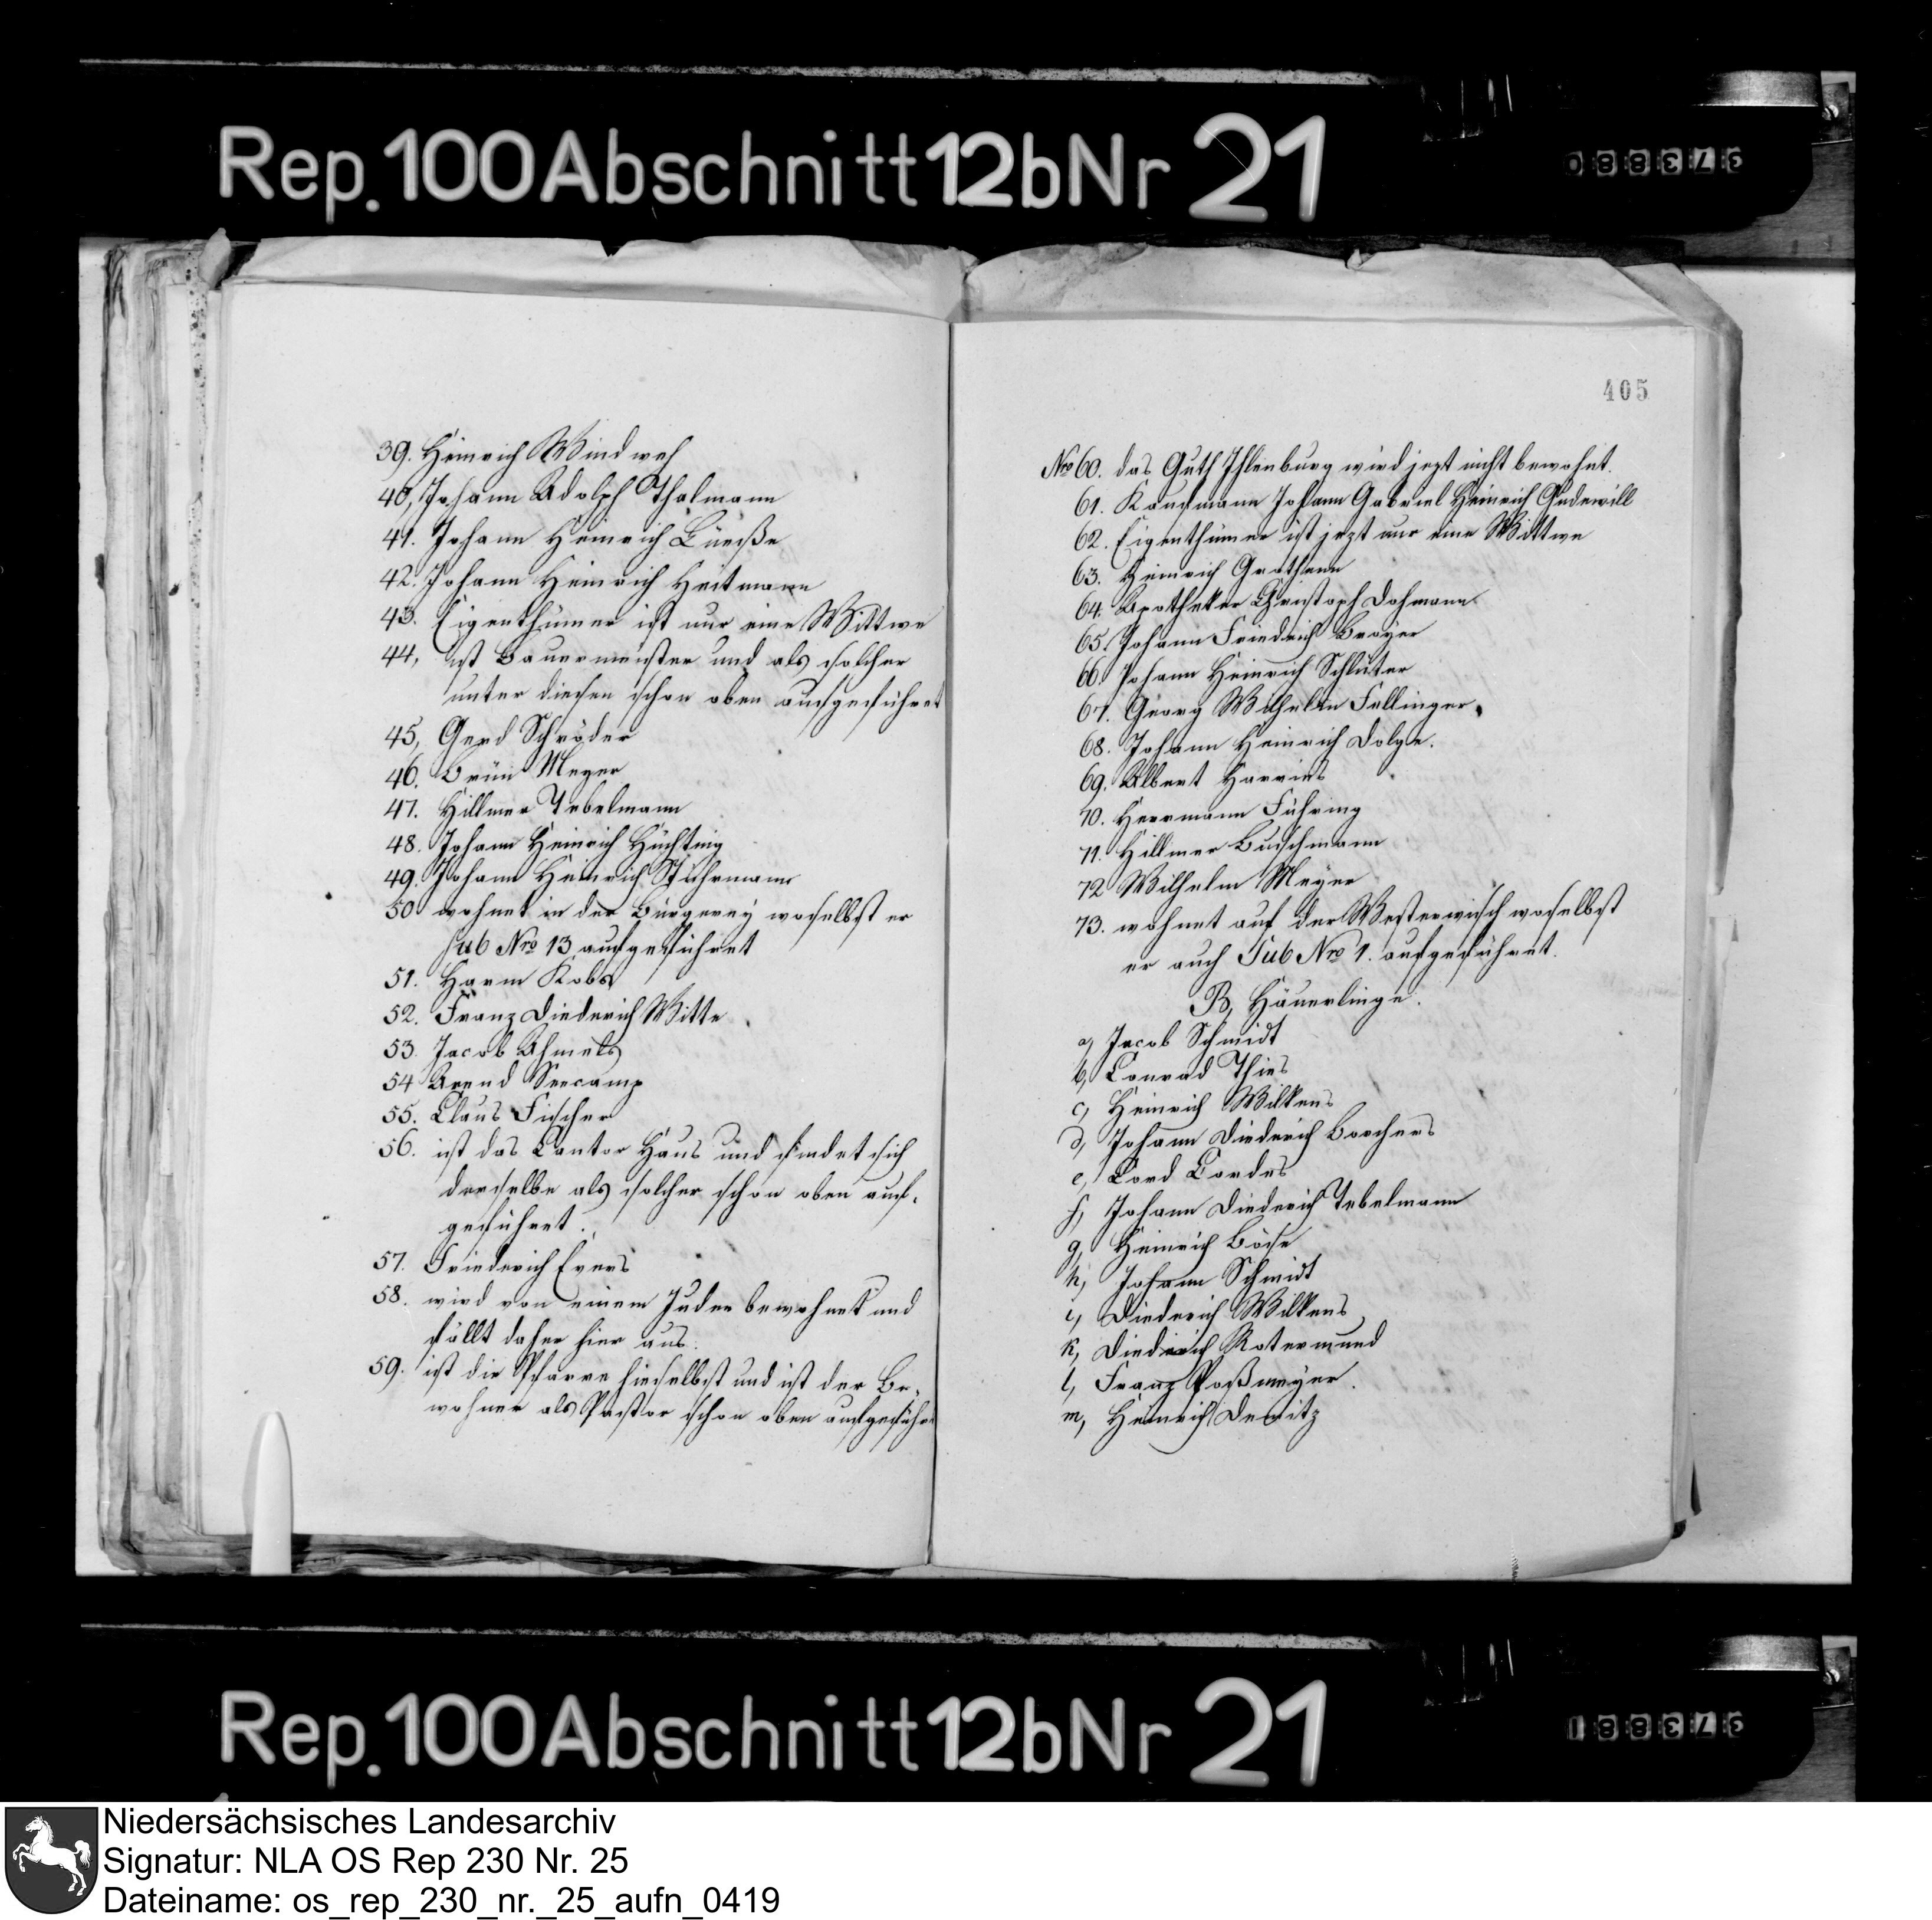 Rep. 100 Abschnitt 12b Nr 21
373880
39. Heinrich Windweh
40, Johann Adolph Thalmann
41. Johann Heinrich Lüerße
42. Johann Heinrich Heitmann
43. Eigenthümer ist nur eine Wittwe
44, ist Bauermeister und als solcher
unter diesen schon oben aufgeführet
45, Gerd Schröder
46. Brün Meyer
47. Hillmer Tebelmann
48. Johann Heinrich Hüchting
49. Johann Heinrich Stuhrmann
50 wohnet in der Bürgerey woselbst er
sub Nro 13 aufgeführet
51. Harm Kobs
52. Franz Diederich Witte
53. Jacob Ahmels
54 Arend Seecamp
55. Claus Fischer
56. ist das Cantor Haus und findet sich
derselbe als solcher schon oben auf-
geführet.
57. Friederich Evers
58. wird von einem Juden bewohnet und
fällt daher hier aus.
59. ist die Pfarre hieselbst und ist der Be-
wohner als Pastor schon oben aufgeführ
405
Nro 60. das Guth Ihlenburg wird jezt nicht bewohnt.
61. Kaufmann Johann Gabriel Heinrich Gudewill
62. Eigenthümer ist jezt nur eine Wittwe
63. Heinrich Grothenn
64. Apotheker Christoph Dohmann
65. Johann Friedrich Broyer
66. Johann Heinrich Schluter
67. Georg Wilhelm Fellinger.
68. Johann Heinrich Dolge.
69. Albert Harries
70. Herrmann Führing
71. Hillmer Buschmann
72 Wilhelm Meyer
73. wohnet auf der Westerwisch woselbst
er auch Sub Nro 1. aufgeführet.
B, Häuerlinge.
a, Jacob Schmidt
b, Conrad Thies
c, Heinrich Wilkens
d, Johann Diederich Borchers
e, Cord Cordes
f, Johann Diederich Tebelmann
g, Heinrich Böse
h, Johann Schmidt
i, Diederich Wilkens
k, Diedrich Rotermund
l, Franz Poßmeyer.
m, Heinrich Denitz
Rep. 100 Abschnitt 12b Nr 21
373881
Niedersächsisches Landesarchiv
Signatur: NLA OS Rep 230 Nr. 25
Dateiname: os_rep_230_nr._25_aufn_0419